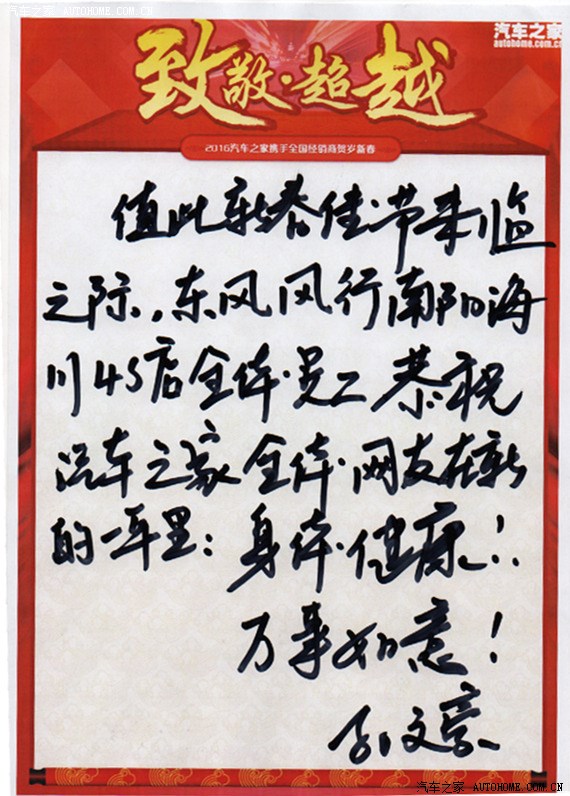 汽车之家 AUTOHOME.COM.CN
汽车之家
autohome.com.cn
致敬·超越
2016汽车之家携手全国经销商贺岁新春
值此新春佳节来临
之际,东风风行南阳海
川4S店全体员工恭祝
汽车之家全体网友在新
的一年里:身体健康!
万事如意!
汽车之家 AUTOHOME.COM.CN